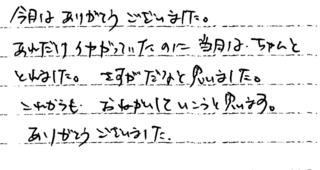 今日は ありがとう ございました。
あれだけ イヤがっていたのに 当日は、ちゃんと
とれました。さすがだなと思いました。
これからも おねがいしていこうと思います。
ありがとう ございました.